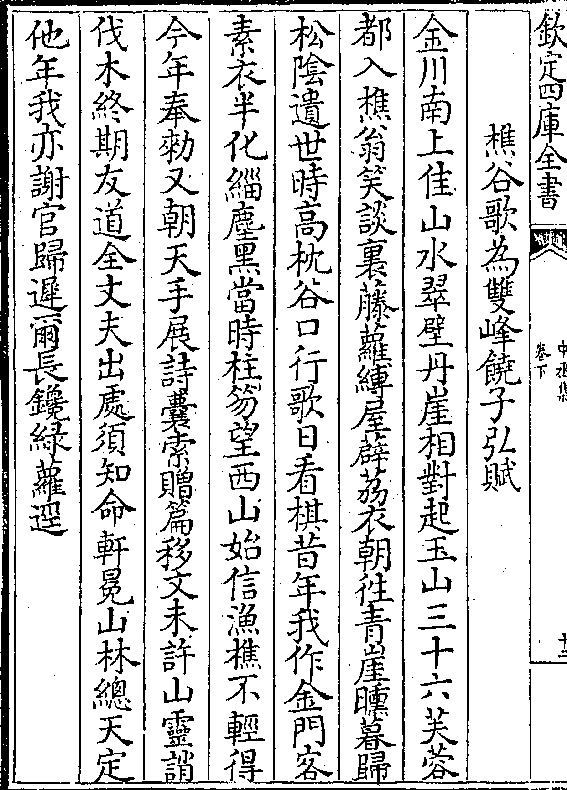 欽定四庫全書
卷下
樵谷歌為雙峰饒子弘賦
金川南上佳山水翠壁丹崖相對起玉山三十六芙蓉
都入樵翁笑談裏藤蘿縛屋薜荔衣朝徃青崖曛暮歸
松陰遺世時高枕谷口行歌日看棋昔年我作金門客
素衣半化緇塵黑當時柱笏望西山始信漁樵不輕得
今年奉勑又朝天手展詩囊索贈篇移文未許山靈誚
伐木終期友道全丈夫出處須知命軒冕山林總天定
他年我亦謝官歸遲爾長鑱綠蘿逕